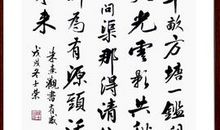 畝方塘一鑑
光雲影共
問渠那得清
為有源頭活
来
朱熹觀書有感
戊戌冬士榮